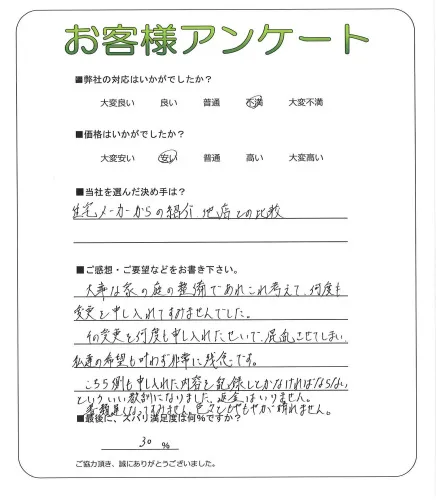 お客様アンケート
■弊社の対応はいかがでしたか?
大変良い 良い 普通 不満 大変不満
■価格はいかがでしたか?
大変安い 安い 普通 高い 大変高い
■当社を選んだ決め手は?
住宅メーカーからの紹介、他店との比較
■ご感想・ご要望などをお書き下さい。
大事な家の庭の整備であれこれ考えて、何度も
変更を申し入れてすみませんでした。
その変更を何度も申し入れたせいで、混乱させてしまい
私達の希望も叶わず非常に残念です。
こちら側も申し入れた内容を記録しとかなければならない
といういい教訓になりました。返金はいりません。
書類遅くなってすみません。色々ともやもやが晴れません。
■最後に、ズバリ満足度は何%ですか?
30 %
ご協力頂き、誠にありがとうございました。